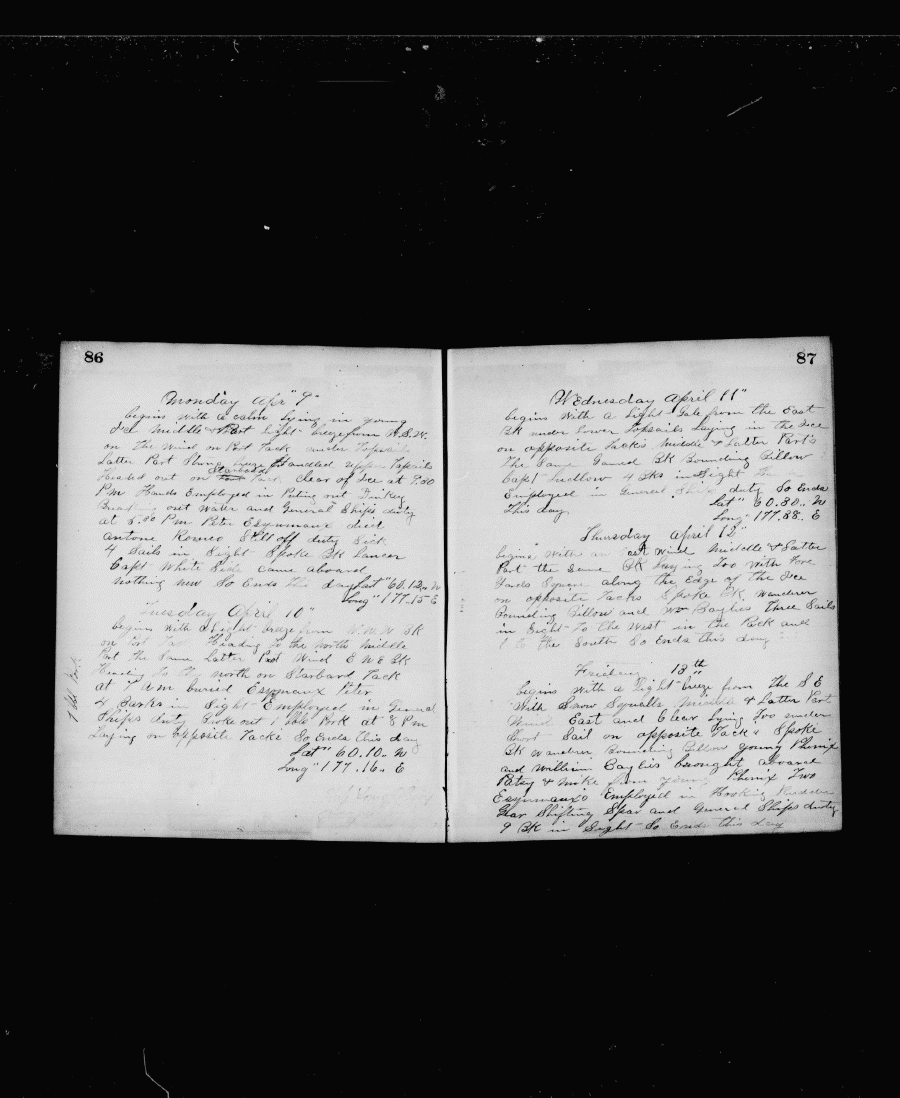 86
Monday Apr" 9"
begins with a calm lying in young
Ice Middle & Part light breeze from W.S.W.
on the Wind on Port Tack under Topsails
Latter Part Strong breeze Handled upper Topsails
Headed out on Starboard Tack clear of Ice at 7.30
P m Hands Employed in Puting out
out Water and General Ships duty
at 5.00 P m Peter Esquimaux died
Antone Romeo Still off duty Sick
4 Sails in Sight Spoke Bk Lancer
Capt White Side came aboard
nothing new So Ends this day Lat" 60.12.. N
Long" 177.15 E
Tuesday April 10"
begins with a light breeze from W.N.W Bk
on Port Tack Heading to the north Middle
Part the Same Latter Part Wind E N E Bk
Heading to the north on Starbard Tack
at 7 A m buried Esqymaux Peter
4 Barks in Sight Employed in General
Ships duty Broke out 1 bbl Pork at 8 P m
Laying on opposite Tacks So Ends this day
Lat" 60.10.. N
Long" 177.16.. E
1 bbl Pork
87
Wednesday April 11"
begins with a light Gale from the East
Bk under lower Topsails Laying in the Ice
on opposite Tacks Middle & Latter Parts
The Same Gamed Bk Bounding Billow
Capt Ludlow 4 Bks in Sight
Employed in General Ships duty So Ends
This day. Lat" 60.30.. N
Long" 177.38. E
Thursday April 12"
begins with an East Wind Middle & Latter
Part the Same Bk Laying Too with Fore
Yards Square along the Edge of the Ice
on opposite Tacks Spoke Bk Wanderer
Bounding Billow and Wm Baylies three Sails
in Sight to the West in the Pack and
1 to the South So Ends this day
Frieday 13th
begins with a light breeze from the S E
With Snow Squalls Middle & Latter Part
Wind East and Clear lying Too under
Short Sail on opposite Tacks Spoke
Bk Wanderer Bounding Billow young Phenix
and William Baylies brought aboard
Patsy & Mike from young Phenix Two
Esqymaux's Employed in Hooking Rudder
Gear Shifting Spar and General Ships duty
9 Bk in Sight So Ends this day